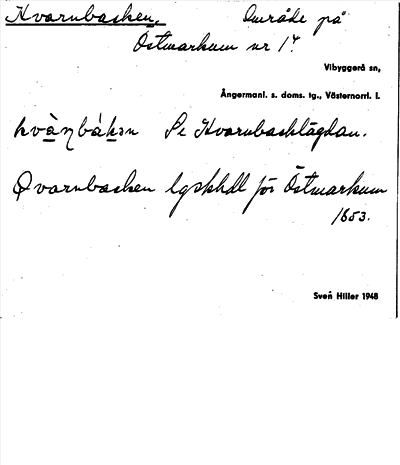 Kvarnbacken, Område på
Östmarkum nr 1 4.
Vibyggerå sn,
Ångermanl. s. doms. tg., Västernorrl. l.
kvàɳbákən Se Kvarnbacktägdan.
Qvarnbacken lgskhdl för Östmarkum
1853.
Sven Hiller 1948